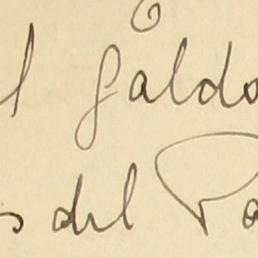 l Galdo
s del Pa